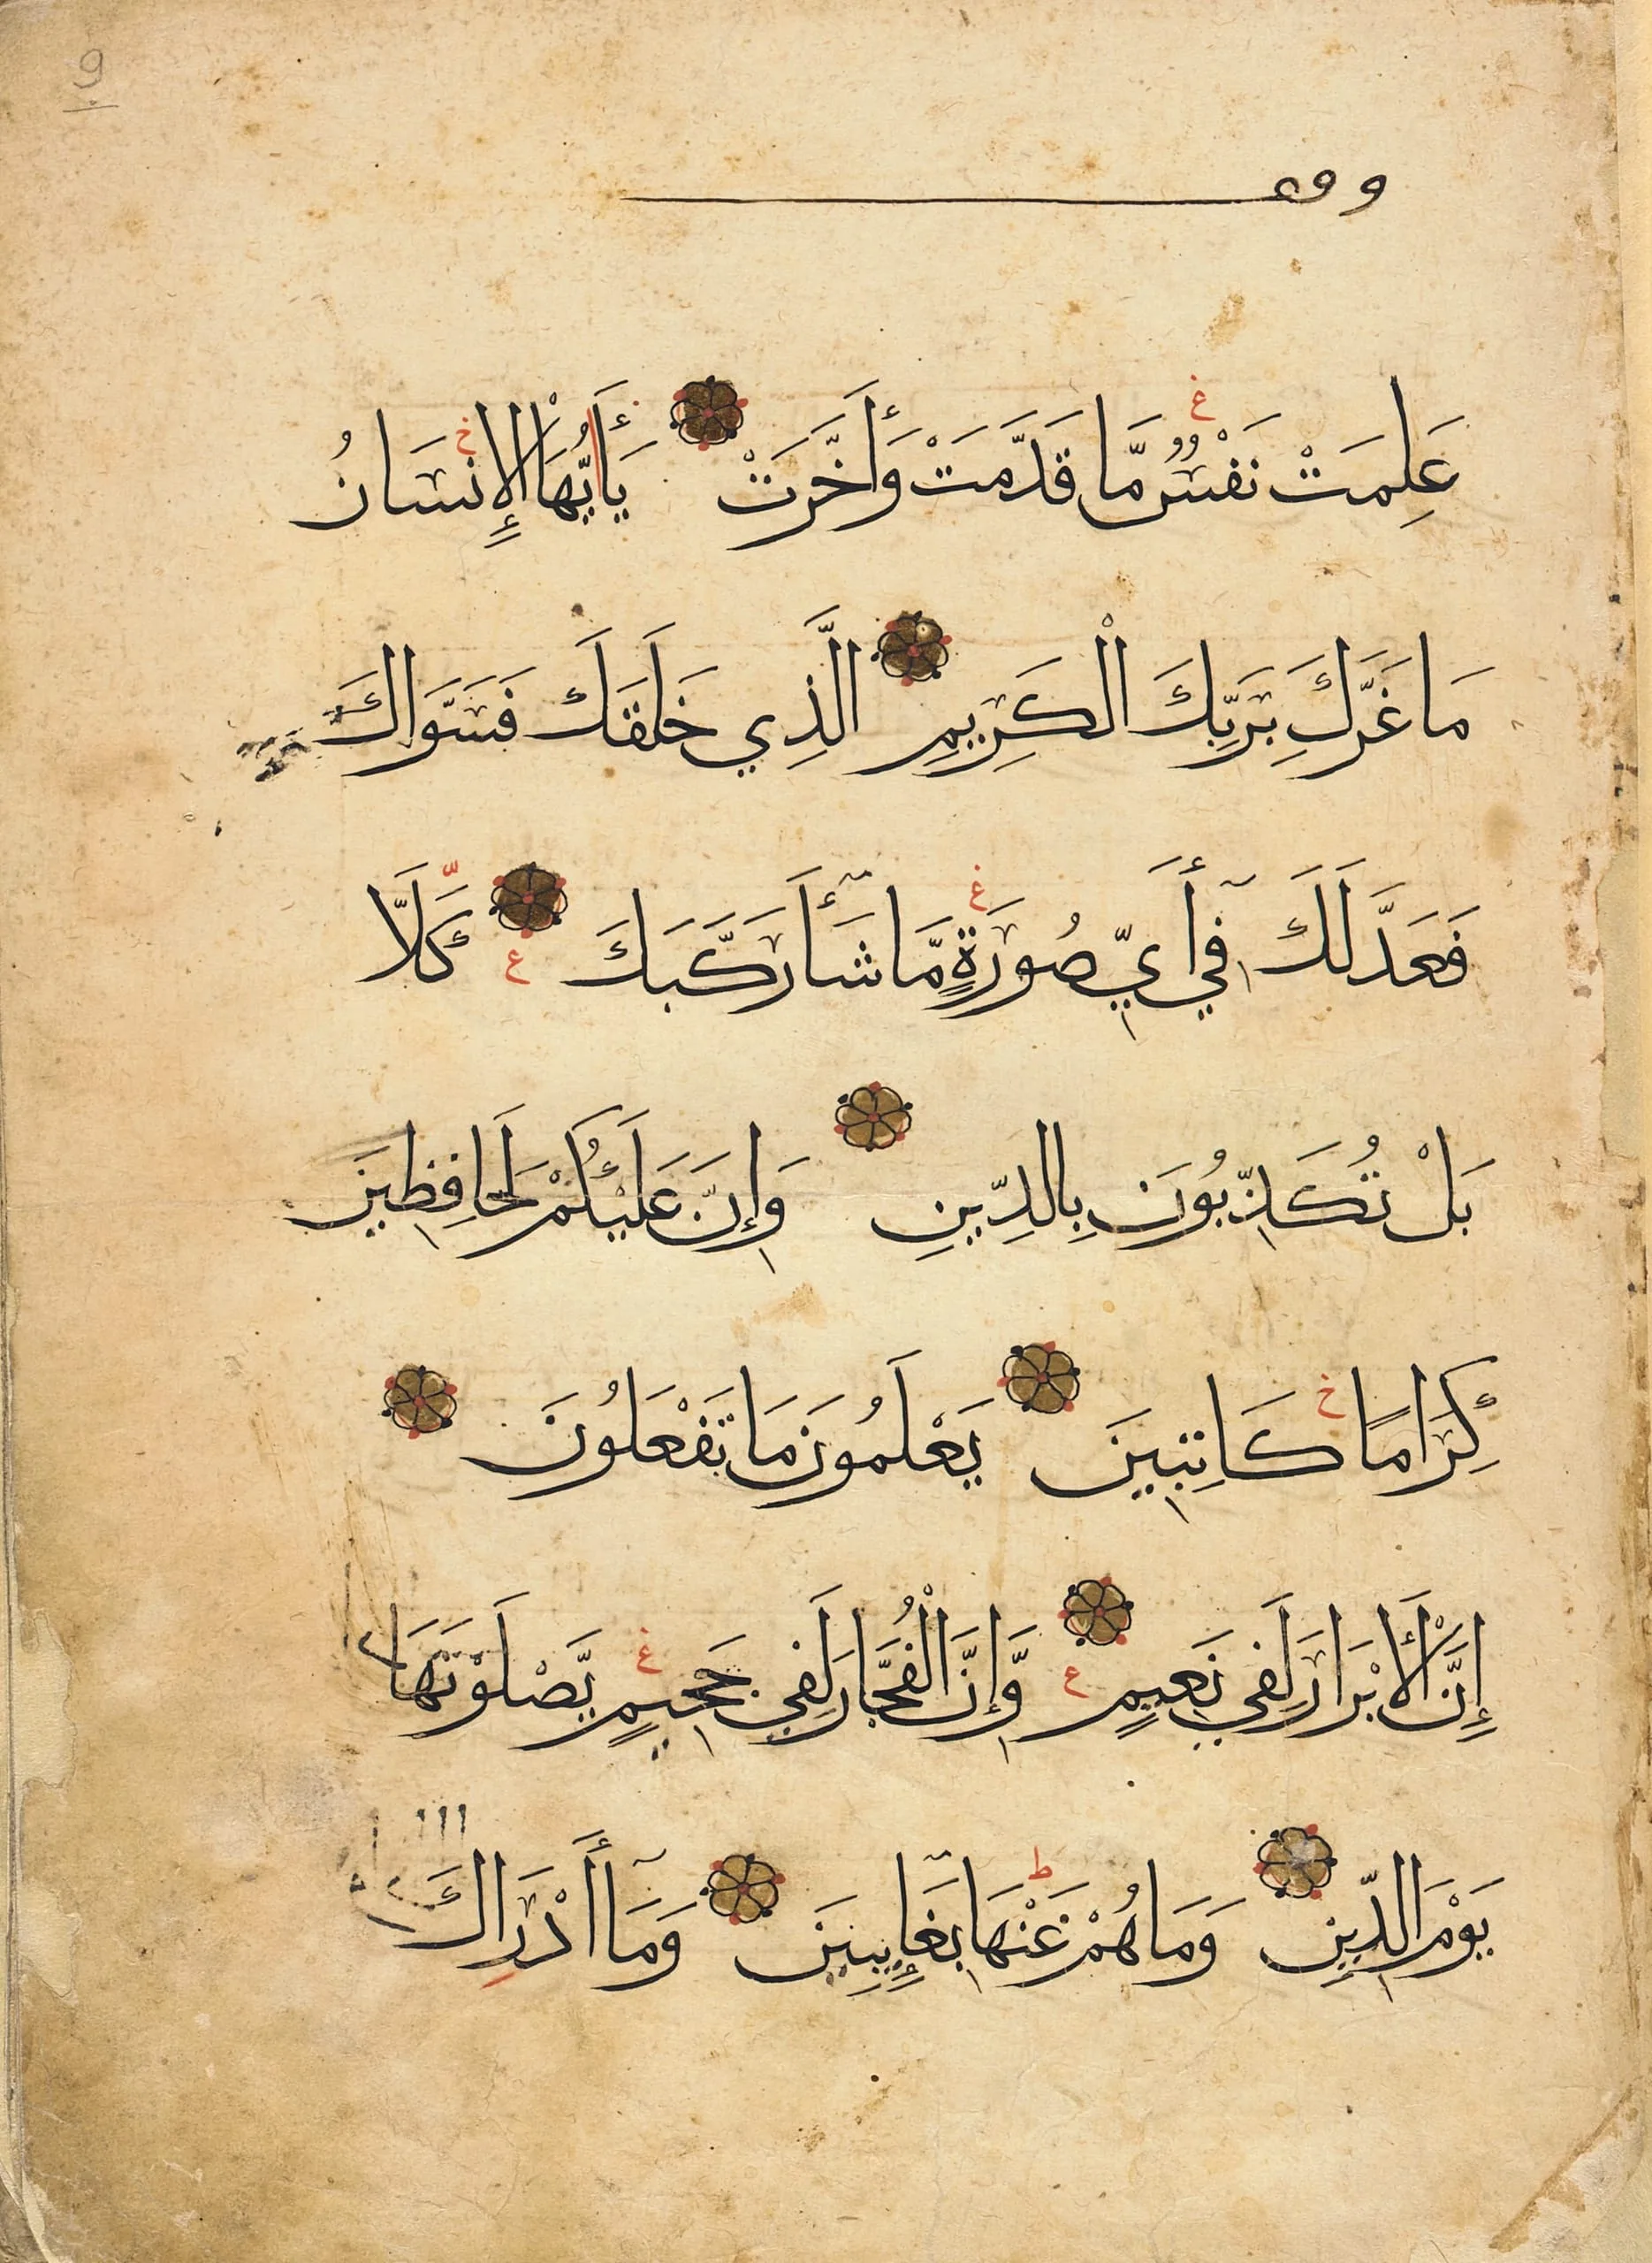 9
عَلِمَتْ نَفْسٌ مَّا قَدَّمَتْ وَأَخَّرَتْ يَأَيُّهَا الْإِنسَانُ
مَا غَرَّكَ بِرَبِّكَ الْكَرِيمِ الَّذِي خَلَقَكَ فَسَوَّاكَ
فَعَدَّلَكَ فِيٓ أَيِّ صُورَةٍ مَّا شَآءَ رَكَّبَكَ كَلَّا
بَلْ تُكَذِّبُونَ بِالدِّينِ وَإِنَّ عَلَيْكُمْ لَحَافِظِينَ
كِرَامًا كَاتِبِينَ يَعْلَمُونَ مَا تَفْعَلُونَ
إِنَّ الْأَبْرَارَ لَفِي نَعِيمٍ وَّإِنَّ الْفُجَّارَ لَفِي جَحِيمٍ يَّصْلَوْنَهَا
يَوْمَ الدِّينِ وَمَا هُمْ عَنْهَا بِغَآئِبِينَ وَمَآ أَدْرَاكَ